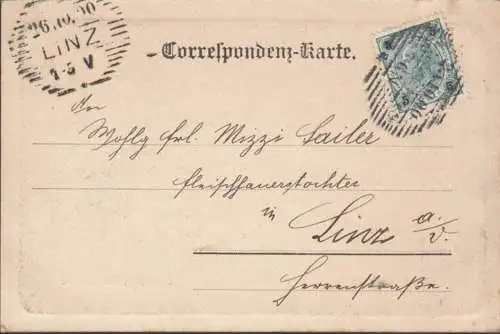 26.10.00
LINZ
1-5 V
Correspondenz-Karte.
An
Wohlg frl. Mizzi Sailer
fleischhauerstochter
in
Linz a/d.
Herrenstraße.